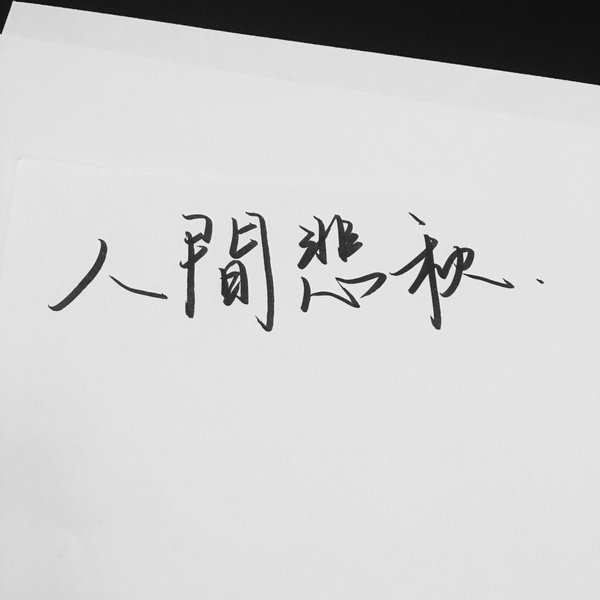 人間悲秋.